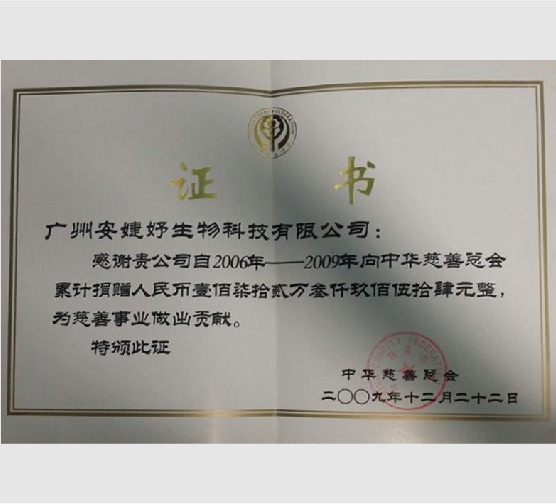 证 书
广州安婕妤生物科技有限公司：
感谢贵公司自2006年——2009年向中华慈善总会
累计捐赠人民币壹佰柒拾贰万叁仟玖佰伍拾肆元整，
为慈善事业做出贡献。
特颁此证
中华慈善总会
二〇〇九年十二月二十二日